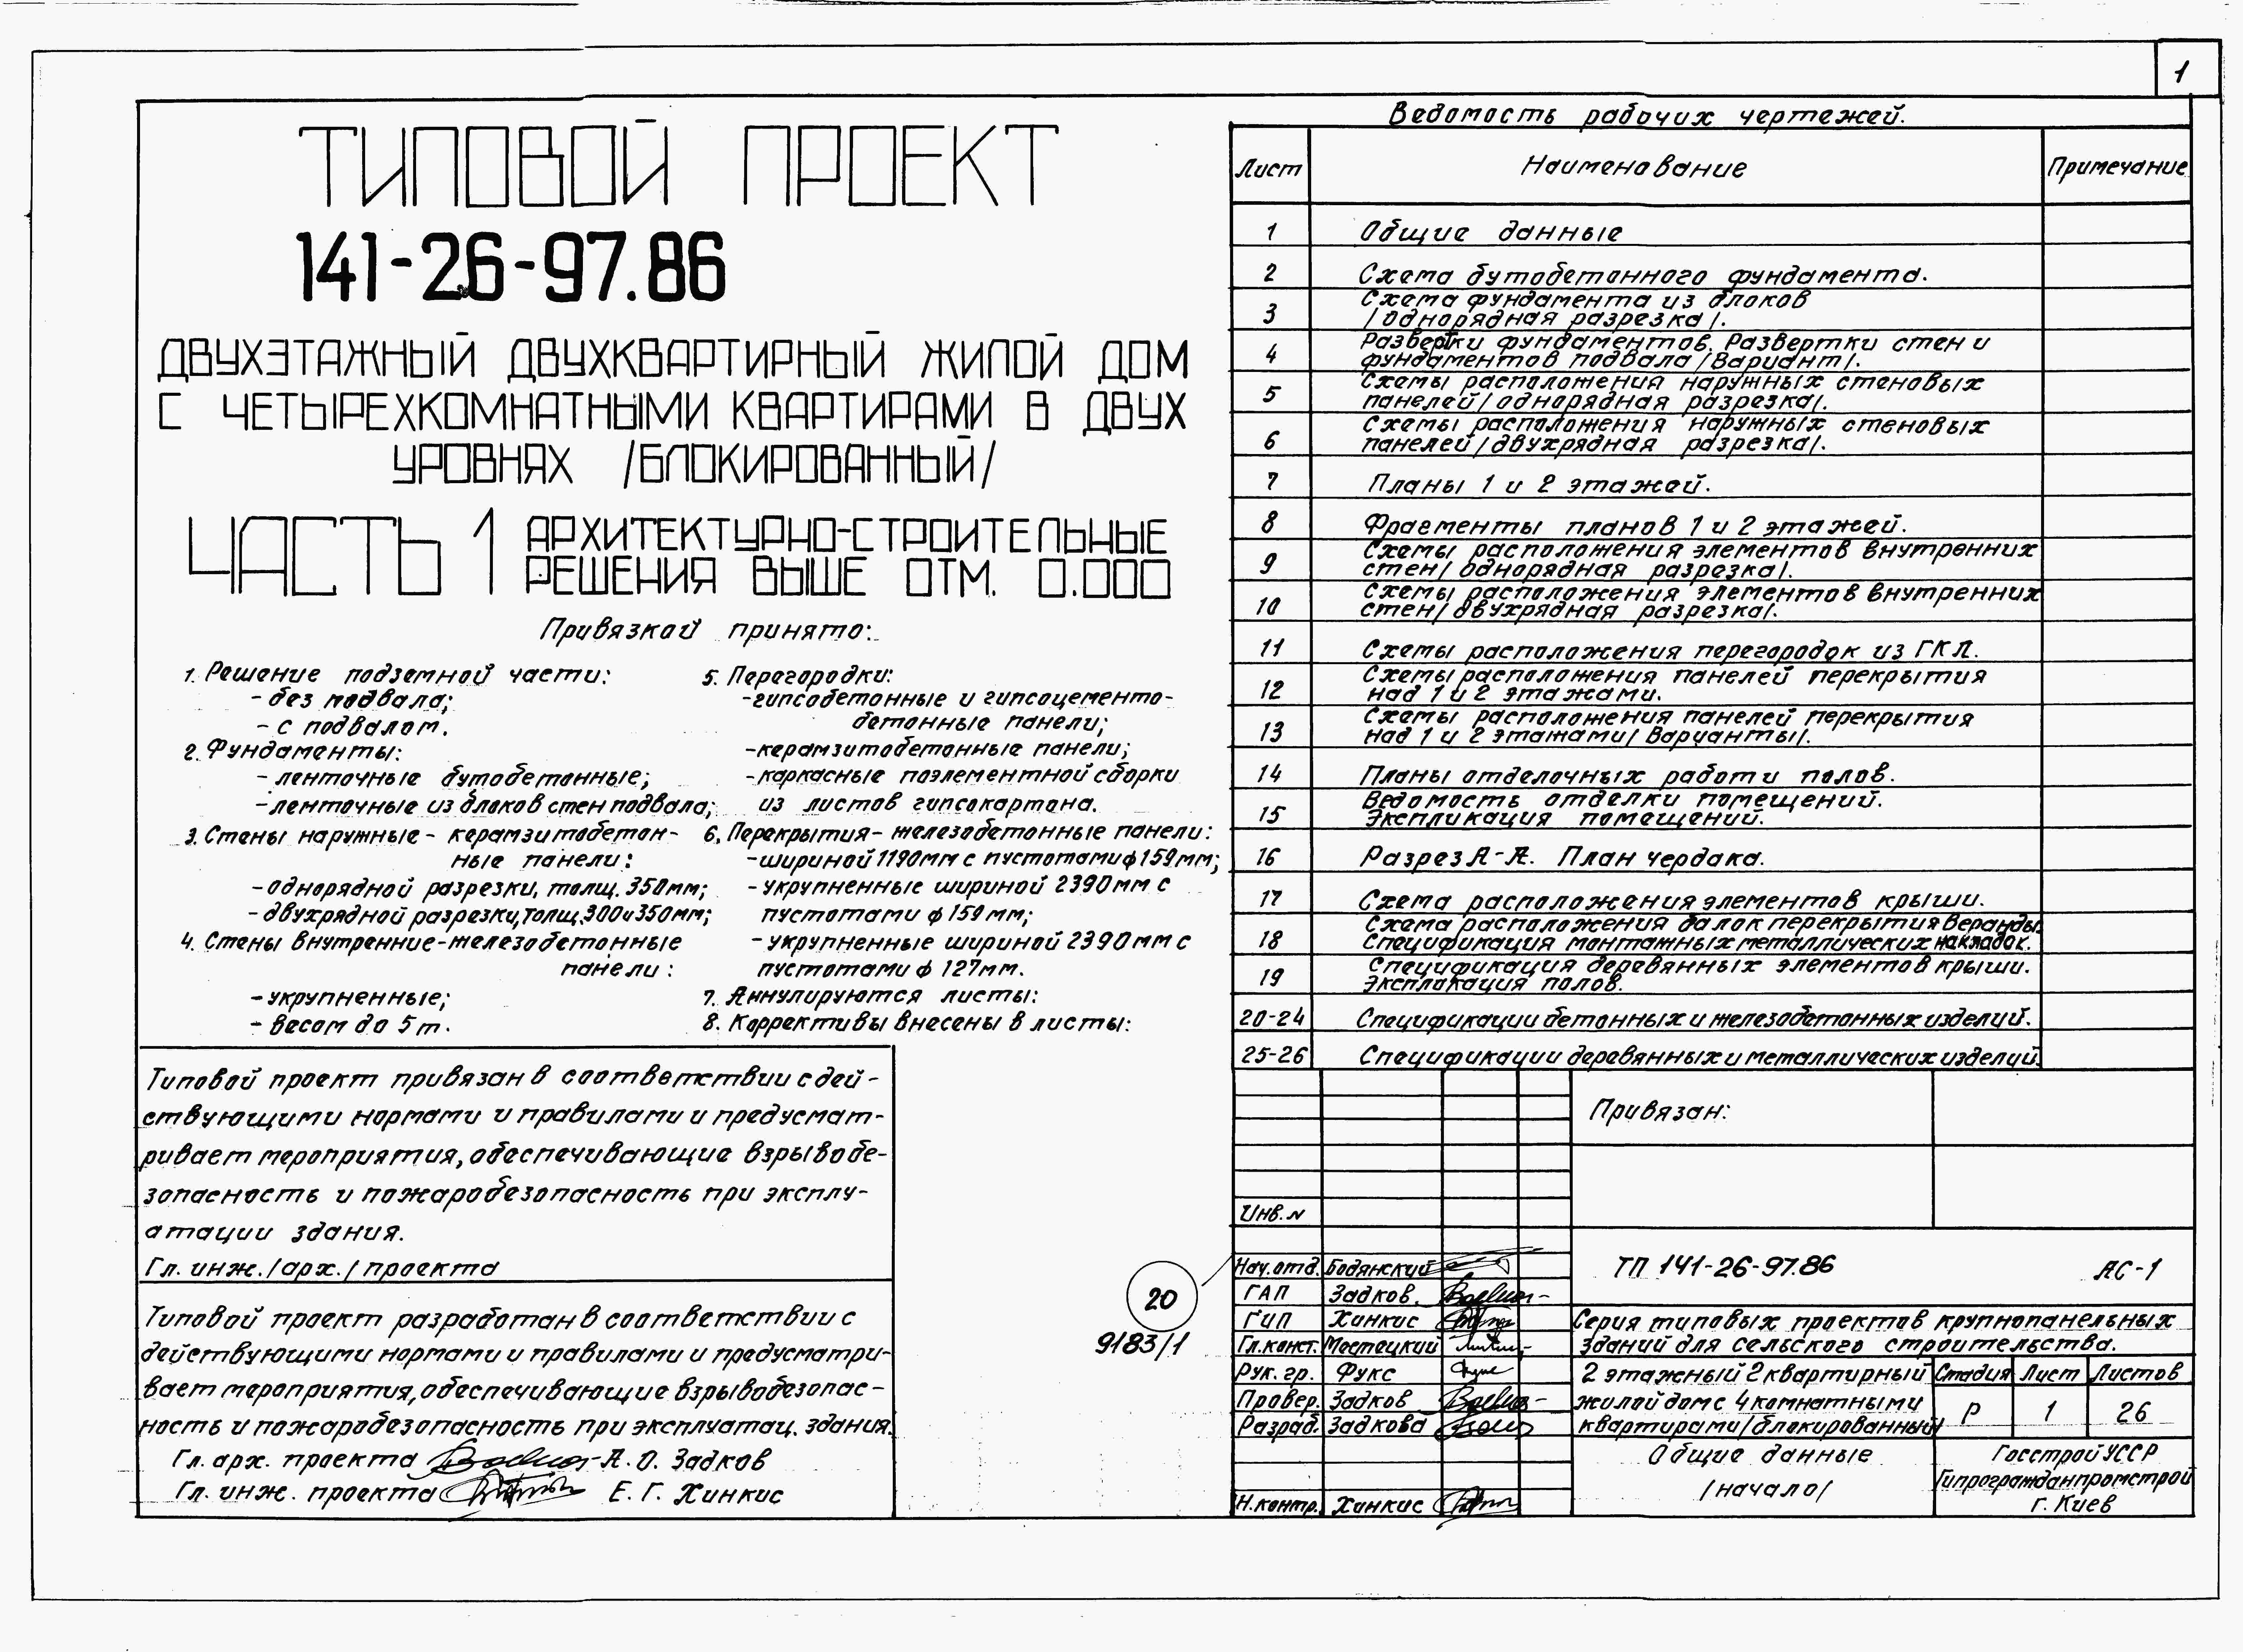 1
ТИПОВОЙ ПРОЕКТ
141-26-97.86
ДВУХЭТАЖНЫЙ ДВУХКВАРТИРНЫЙ ЖИЛОЙ ДОМ
С ЧЕТЫРЕХКОМНАТНЫМИ КВАРТИРАМИ В ДВУХ
УРОВНЯХ /БЛОКИРОВАННЫЙ/
ЧАСТЬ 1 АРХИТЕКТУРНО-СТРОИТЕЛЬНЫЕ
РЕШЕНИЯ ВЫШЕ ОТМ. 0.000
Привязкой принято:
1. Решение подземной части:
- без подвала;
- с подвалом.
2. Фундаменты:
- ленточные бутобетонные;
- ленточные из блоков стен подвала;
3. Стены наружные - керамзитобетон-
ные панели:
- однорядной разрезки, толщ. 350мм;
- двухрядной разрезки, толщ. 300 и 350мм;
4. Стены внутренние - железобетонные
панели:
- укрупненные;
- весом до 5 т.
5. Перегородки:
- гипсобетонные и гипсоцементо-
бетонные панели;
- керамзитобетонные панели;
- каркасные поэлементной сборки
из листов гипсокартона.
6. Перекрытия - железобетонные панели:
- шириной 1190мм с пустотами ф 159мм;
- укрупненные шириной 2390мм с
пустотами ф 159 мм;
- укрупненные шириной 2390мм с
пустотами ф 127мм.
7. Аннулируются листы:
8. Коррективы внесены в листы:
Типовой проект привязан в соответствии с дей-
ствующими нормами и правилами и предусмат-
ривает мероприятия, обеспечивающие взрывобе-
зопасность и пожаробезопасность при эксплу-
атации здания.
Гл. инж. /арх./ проекта
Типовой проект разработан в соответствии с
действующими нормами и правилами и предусматри-
вает мероприятия, обеспечивающие взрывобезопас-
ность и пожаробезопасность при эксплуатац. здания.
Гл. арх. проекта А. О. Задков
Гл. инж. проекта Е. Г. Хинкис
20
9183/1
Ведомость рабочих чертежей.
Лист Наименование Примечание
1 Общие данные
2 Схема бутобетонного фундамента.
3 Схема фундамента из блоков
/однорядная разрезка/.
4 Развертки фундаментов. Развертки стен и
фундаментов подвала /Вариант/.
5 Схемы расположения наружных стеновых
панелей /однорядная разрезка/.
6 Схемы расположения наружных стеновых
панелей /двухрядная разрезка/.
7 Планы 1 и 2 этажей.
8 Фрагменты планов 1 и 2 этажей.
9 Схемы расположения элементов внутренних
стен /однорядная разрезка/.
10 Схемы расположения элементов внутренних
стен /двухрядная разрезка/.
11 Схемы расположения перегородок из ГКЛ.
12 Схемы расположения панелей перекрытия
над 1 и 2 этажами.
13 Схемы расположения панелей перекрытия
над 1 и 2 этажами /Варианты/.
14 Планы отделочных работ и полов.
15 Ведомость отделки помещений.
Экспликация помещений.
16 Разрез А-А. План чердака.
17 Схема расположения элементов крыши.
18 Схема расположения балок перекрытия веранды.
Спецификация монтажных металлических накладок.
19 Спецификация деревянных элементов крыши.
Экспликация полов.
20-24 Спецификации бетонных и железобетонных изделий.
25-26 Спецификации деревянных и металлических изделий.
Привязан:
Инв. N
Нач. отд. Бодянский
ГАП Задков.
ГИП Хинкис
Гл. конст. Мостецкий
Рук. гр. Фукс
Провер. Задков
Разраб. Задкова
Н. контр. Хинкис
ТП 141-26-97.86 АС-1
Серия типовых проектов крупнопанельных
зданий для сельского строительства.
2 этажный 2 квартирный
жилой дом с 4 комнатными
квартирами /блокированный/
Стадия Лист Листов
Р 1 26
Общие данные
/начало/
Госстрой УССР
Гипрогражданпромстрой
г. Киев